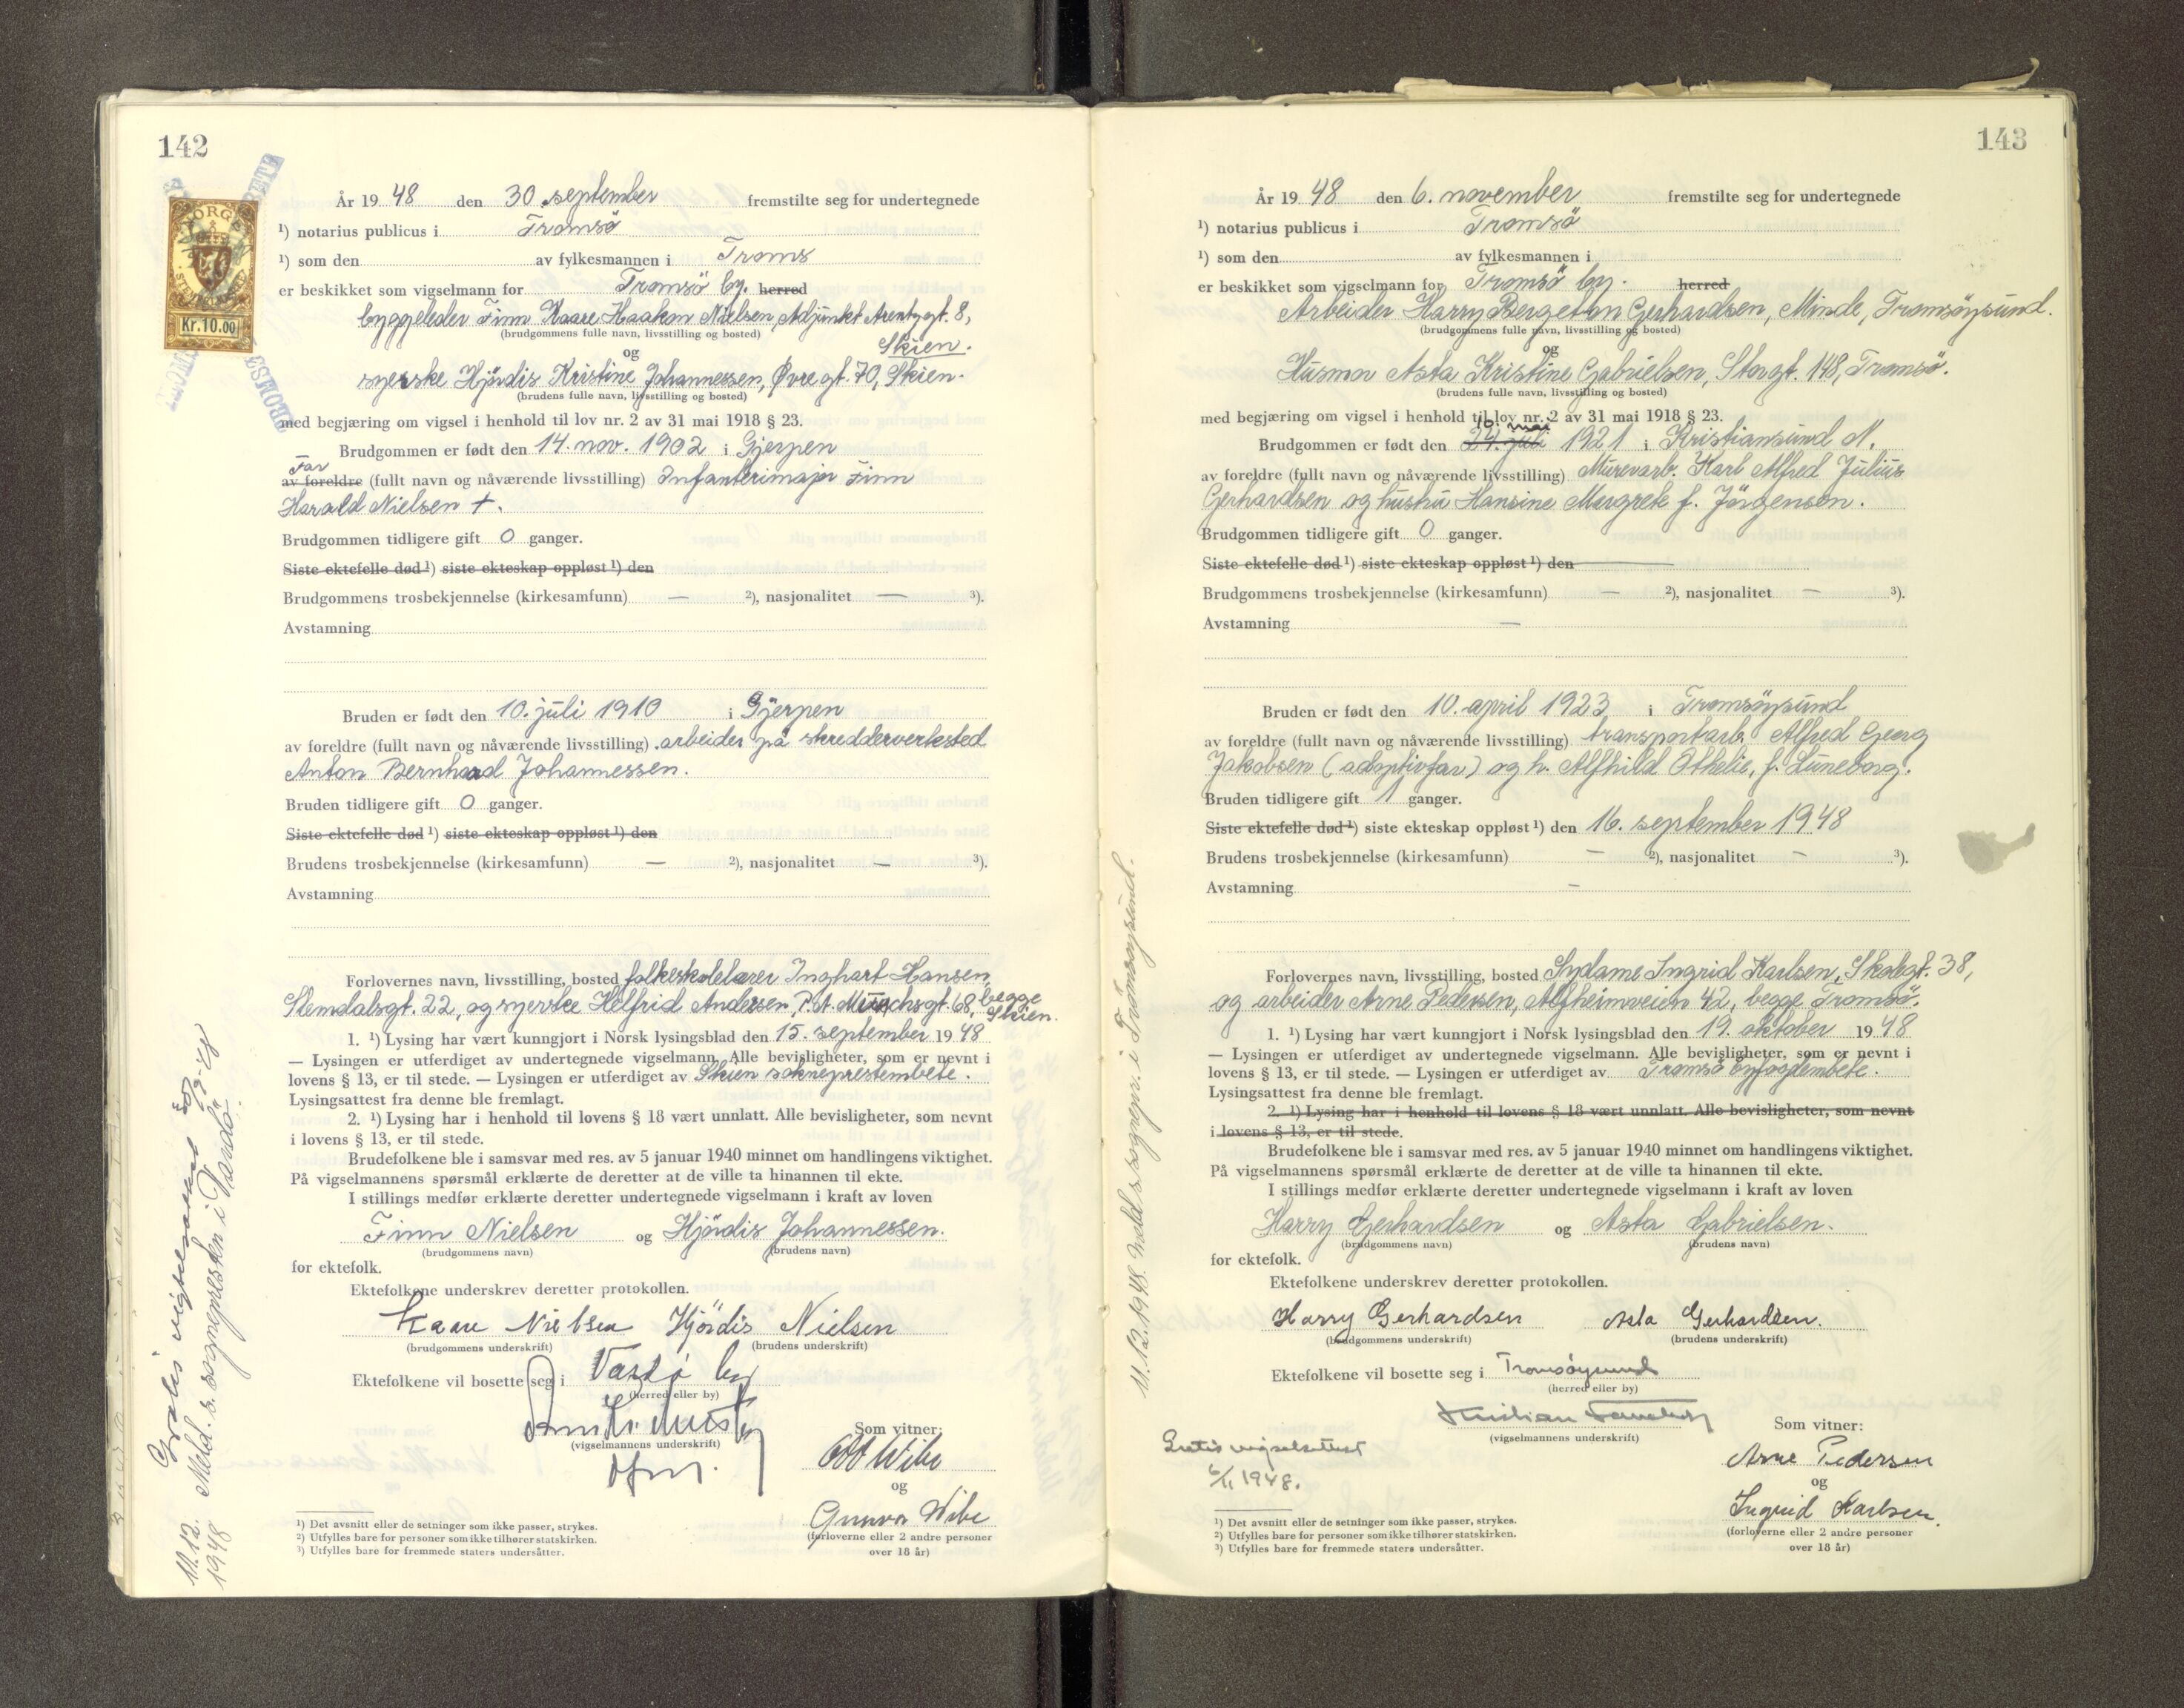 142
År 19 48 den 30. september fremstilte seg for undertegnede
¹) notarius publicus i Tromsö
¹) som den av fylkesmannen i Troms
er beskikket som vigselmann for Tromsö by. herred
NORGE
Kr. 10.00
byggeleder Finn Kaare Haakon Nielsen, Adjunkt Arentz gt. 8,
(brudgommens fulle navn, livsstilling og bosted)
Skien.
og
syerske Hjördis Kristine Johannessen, Øvre gt. 70, Skien.
(brudens fulle navn, livsstilling og bosted)
med begjæring om vigsel i henhold til lov nr. 2 av 31 mai 1918 § 23.
Brudgommen er født den 14. nov. 1902 i Gjerpen
Far
av foreldre (fullt navn og nåværende livsstilling) Infanterimajor Finn
Harald Nielsen +.
Brudgommen tidligere gift 0 ganger.
Siste ektefelle død ¹) siste ekteskap oppløst ¹) den
Brudgommens trosbekjennelse (kirkesamfunn) — ²), nasjonalitet — ³).
Avstamning
Bruden er født den 10. juli 1910 i Gjerpen
av foreldre (fullt navn og nåværende livsstilling) arbeider på skredderverksted
Anton Bernhard Johannessen.
Bruden tidligere gift 0 ganger.
Siste ektefelle død ¹) siste ekteskap oppløst ¹) den
Brudens trosbekjennelse (kirkesamfunn) — ²), nasjonalitet — ³).
Avstamning
Forlovernes navn, livsstilling, bosted folkeskolelærer Inghart Hansen,
Slemdalsgt. 22, og syerske Helfrid Andersen, P. A. Munchsgt. 68, begge
Skien.
1. ¹) Lysing har vært kunngjort i Norsk lysingsblad den 15. september 19 48
— Lysingen er utferdiget av undertegnede vigselmann. Alle bevisligheter, som er nevnt i
lovens § 13, er til stede. — Lysingen er utferdiget av Skien sokneprestembete.
Lysingsattest fra denne ble fremlagt.
2. ¹) Lysing har i henhold til lovens § 18 vært unnlatt. Alle bevisligheter, som nevnt
i lovens § 13, er til stede.
Brudefolkene ble i samsvar med res. av 5 januar 1940 minnet om handlingens viktighet.
På vigselmannens spørsmål erklærte de deretter at de ville ta hinannen til ekte.
I stillings medfør erklærte deretter undertegnede vigselmann i kraft av loven
Finn Nielsen og Hjördis Johannessen.
(brudgommens navn) (brudens navn)
for ektefolk.
Ektefolkene underskrev deretter protokollen.
Kaare Nielsen Hjördis Nielsen
(brudgommens underskrift) (brudens underskrift)
Ektefolkene vil bosette seg i Vardø by
(herred eller by)
(vigselmannens underskrift)
Som vitner:
Odd Wibe
og
Gunvor Wibe
(forloverne eller 2 andre personer
over 18 år)
¹) Det avsnitt eller de setninger som ikke passer, strykes.
²) Utfylles bare for personer som ikke tilhører statskirken.
³) Utfylles bare for fremmede staters undersåtter.
Gratis vigselsattest 30/9-48
11.12. Meld. s. sognepresten i Vardö.
1948
143
År 19 48 den 6. november fremstilte seg for undertegnede
¹) notarius publicus i Tromsö
¹) som den av fylkesmannen i
er beskikket som vigselmann for Tromsö by. herred
Arbeider Harry Bergeton Gerhardsen, Minde, Tromsöysund.
(brudgommens fulle navn, livsstilling og bosted)
og
Husmor Asta Kristine Gabrielsen, Storgt. 148, Tromsö.
(brudens fulle navn, livsstilling og bosted)
med begjæring om vigsel i henhold til lov nr. 2 av 31 mai 1918 § 23.
16. mai
Brudgommen er født den 24. juli 1921 i Kristiansund N.
av foreldre (fullt navn og nåværende livsstilling) Murerarb. Karl Alfred Julius
Gerhardsen og hustru Hansine Margrete f. Jörgensen.
Brudgommen tidligere gift 0 ganger.
Siste ektefelle død ¹) siste ekteskap oppløst ¹) den
Brudgommens trosbekjennelse (kirkesamfunn) — ²), nasjonalitet — ³).
Avstamning —
Bruden er født den 10. april 1923 i Tromsöysund
av foreldre (fullt navn og nåværende livsstilling) transportarb. Alfred Georg
Jakobsen (adoptivfar) og h. Alfhild Othelie, f. Luneborg.
Bruden tidligere gift 1 ganger.
Siste ektefelle død ¹) siste ekteskap oppløst ¹) den 16. september 1948
Brudens trosbekjennelse (kirkesamfunn) — ²), nasjonalitet — ³).
Avstamning —
Forlovernes navn, livsstilling, bosted Sydame Ingrid Karlsen, Skolegt. 38,
og arbeider Arne Pedersen, Alfheimveien 42, begge Tromsö.
1. ¹) Lysing har vært kunngjort i Norsk lysingsblad den 19. oktober 19 48
— Lysingen er utferdiget av undertegnede vigselmann. Alle bevisligheter, som er nevnt i
lovens § 13, er til stede. — Lysingen er utferdiget av Tromsö byfogdembete.
Lysingsattest fra denne ble fremlagt.
2. ¹) Lysing har i henhold til lovens § 18 vært unnlatt. Alle bevisligheter, som nevnt
i lovens § 13, er til stede.
Brudefolkene ble i samsvar med res. av 5 januar 1940 minnet om handlingens viktighet.
På vigselmannens spørsmål erklærte de deretter at de ville ta hinannen til ekte.
I stillings medfør erklærte deretter undertegnede vigselmann i kraft av loven
Harry Gerhardsen og Asta Gabrielsen.
(brudgommens navn) (brudens navn)
for ektefolk.
Ektefolkene underskrev deretter protokollen.
Harry Gerhardsen Asta Gerhardsen.
(brudgommens underskrift) (brudens underskrift)
Ektefolkene vil bosette seg i Tromsöysund
(herred eller by)
(vigselmannens underskrift)
Som vitner:
Arne Pedersen
og
Ingrid Karlsen.
(forloverne eller 2 andre personer
over 18 år)
Gratis vigselsattest
6/11 1948.
¹) Det avsnitt eller de setninger som ikke passer, strykes.
²) Utfylles bare for personer som ikke tilhører statskirken.
³) Utfylles bare for fremmede staters undersåtter.
11.12.1948. Meld. s. sognepr. i Tromsöysund.